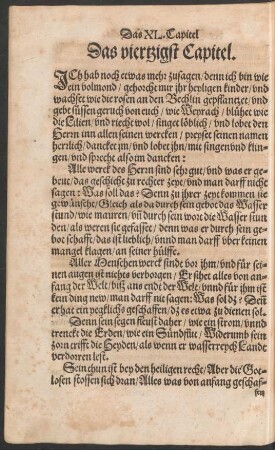 Das XL. Capitel
Das viertzigst Capitel.
ICh hab noch etwas mehr zusagen / denn ich bin wie
ein volmond / gehorcht mir jhr heyligen kinder / vnd
wachset wie die rosen an den Bechlin gepflantzet / vnd
gebt süssen geruch von euch / wie Weyrach / blühet wie
die Lilien / vnd riecht wol / singet löblich / vnd lobet den
Herrn inn allen seinen wercken / preyset seinen namen
herrlich / dancket jm / vnd lobet jhn / mit singen vnd klin-
gen / vnd sprecht also im dancken:
Alle werck des Herrn sind sehr gut / vnd was er ge-
beut / das geschicht zu rechter zeyt / vnd man darff nicht
sagen: Was soll das? Denn zu jhrer zeyt kommen sie
gewünscht / Gleich als da durch sein gebot das Wasser
stund / wie mauren / vñ durch sein wort die Wasser stun
den / als weren sie gefasset / denn was er durch sein ge-
bot schafft / das ist lieblich / vnnd man darff vber keinen
mangel klagen / an seiner hülffe.
Aller Menschen werck sindt vor jhm / vnd für sei-
nen augen ist nichts verborgen / Er sihet alles von an-
fang der Welt / biß ans endt der Welt / vnnd für jhm ist
kein ding new / man darff nit sagen: Was sol dz? Deñ
er hat ein yegklichs geschaffen / dz es etwa zu dienen sol.
Denn sein segen fleust daher / wie ein strom / vnnd
trenckt die Erden / wie ein Sündflut / Widerumb sein
zorn trifft die Heyden / als wenn er wasserreych Lande
verdorren lest.
Sein thun ist bey den heiligen recht / Aber die Got-
losen stossen sich dran / Alles was von anfang geschaf-
fen